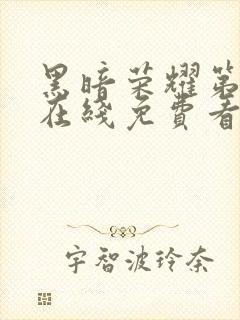 黑暗荣耀第
在綫免費看
宇智波玲奈